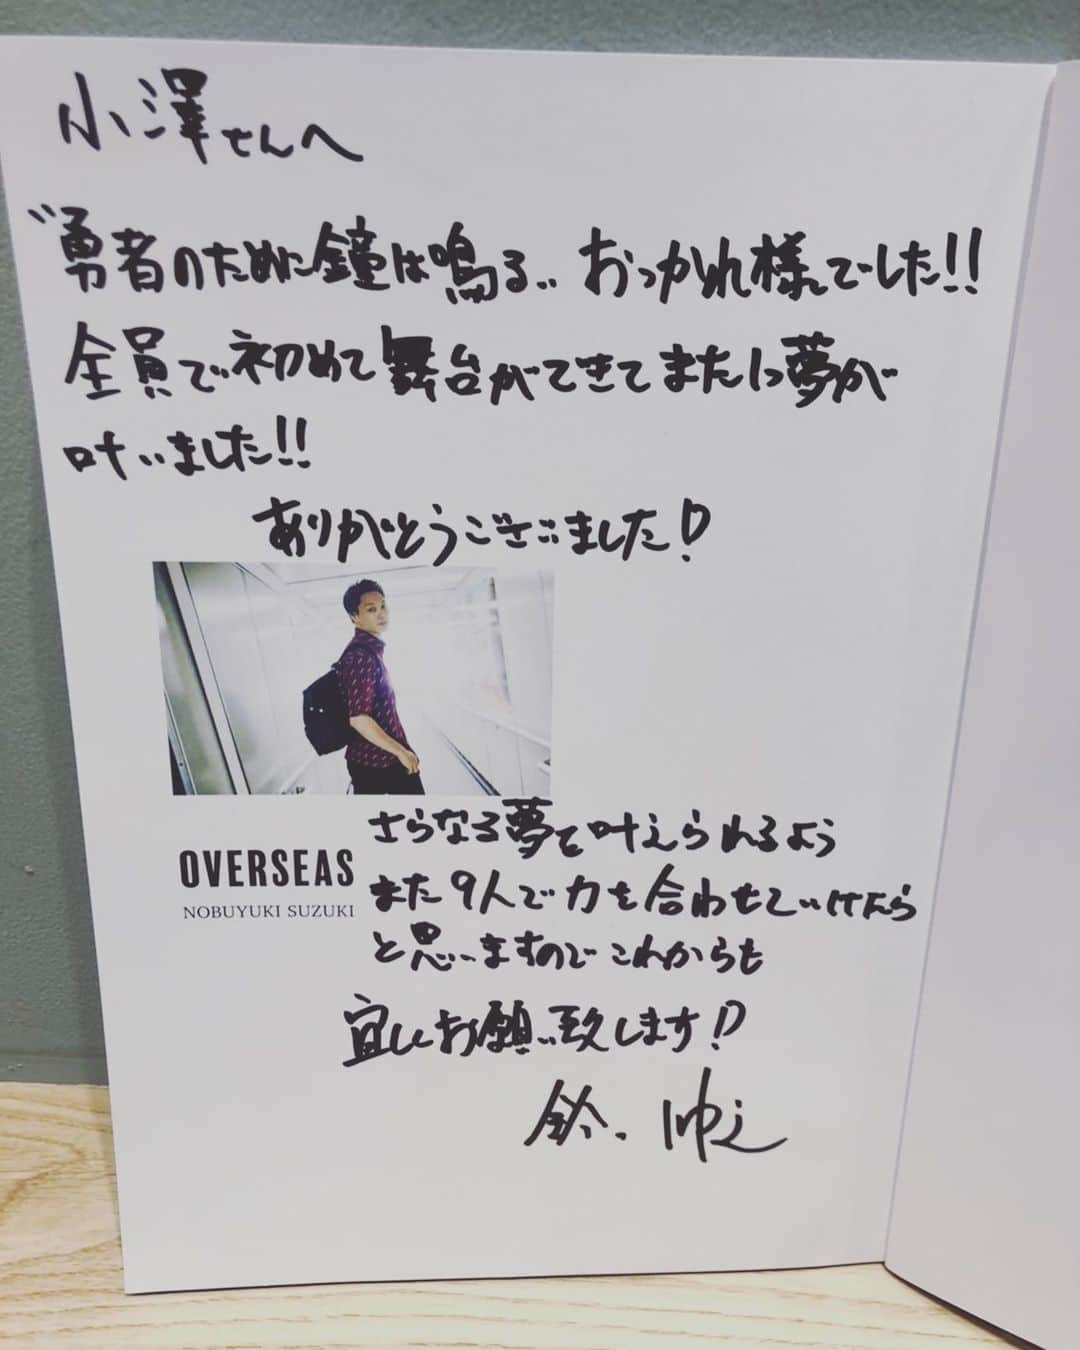 小澤さんへ
〝勇者のために鐘は鳴る〟おっかれ様でした!!
全員で初めて舞台ができてまた1つ夢が
叶いました!!
ありがとうございました!
さらなる夢を叶えられるよう
OVERSEAS
また9人で力を合わせていけたら
NOBUYUKI SUZUKI
と思いますのでこれからも
宜しくお願い致します!